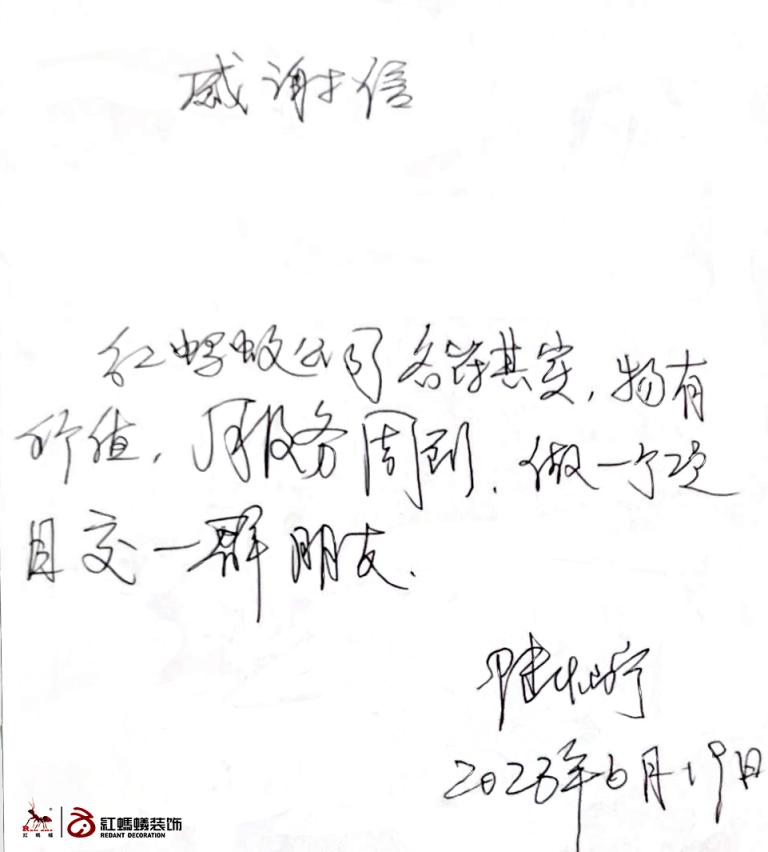 感谢信
红蚂蚁公司名符其实,物有
价值,服务周到,做一个项
目交一群朋友.
2023年6月19日
红蚂蚁
紅螞蟻装饰
REDANT DECORATION